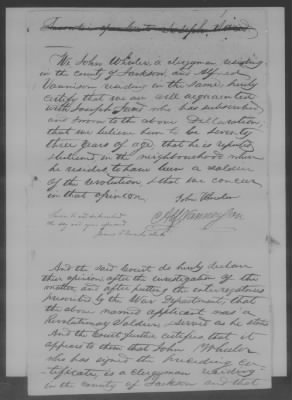 We John Wheeler a clergyman residing
in the county of Jackson, and Alfred
Vannison residing in the same hereby
certify that we are well acquainted
with Joseph who has subscribed
and sworn to the above Declaration,
that we believe him to be seventy
three years of age, that he is reputed
& believed in the neighbourhood where
he resides to have been a soldier
of the revolution, & that we concur
in that opinion.
John Wheeler
Sworn to and subscribed
the day and year aforesaid
And the said Court do hereby declare
their opinion after the investigation of the
matter and after putting the interrogatories
prescribed by the War Department, that
the above named applicant was a
Revolutionary Soldier & served as he states
And the Court further certifies that it
appears to them that John Wheeler
who has signed the preceding cer-
tificate is a clergyman residing
in the county of Jackson and that